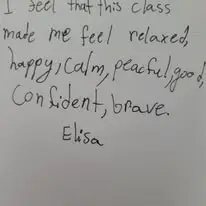 I feel that this class
made me feel relaxed,
happy, calm, peacful, good,
confident, brave.
Elisa